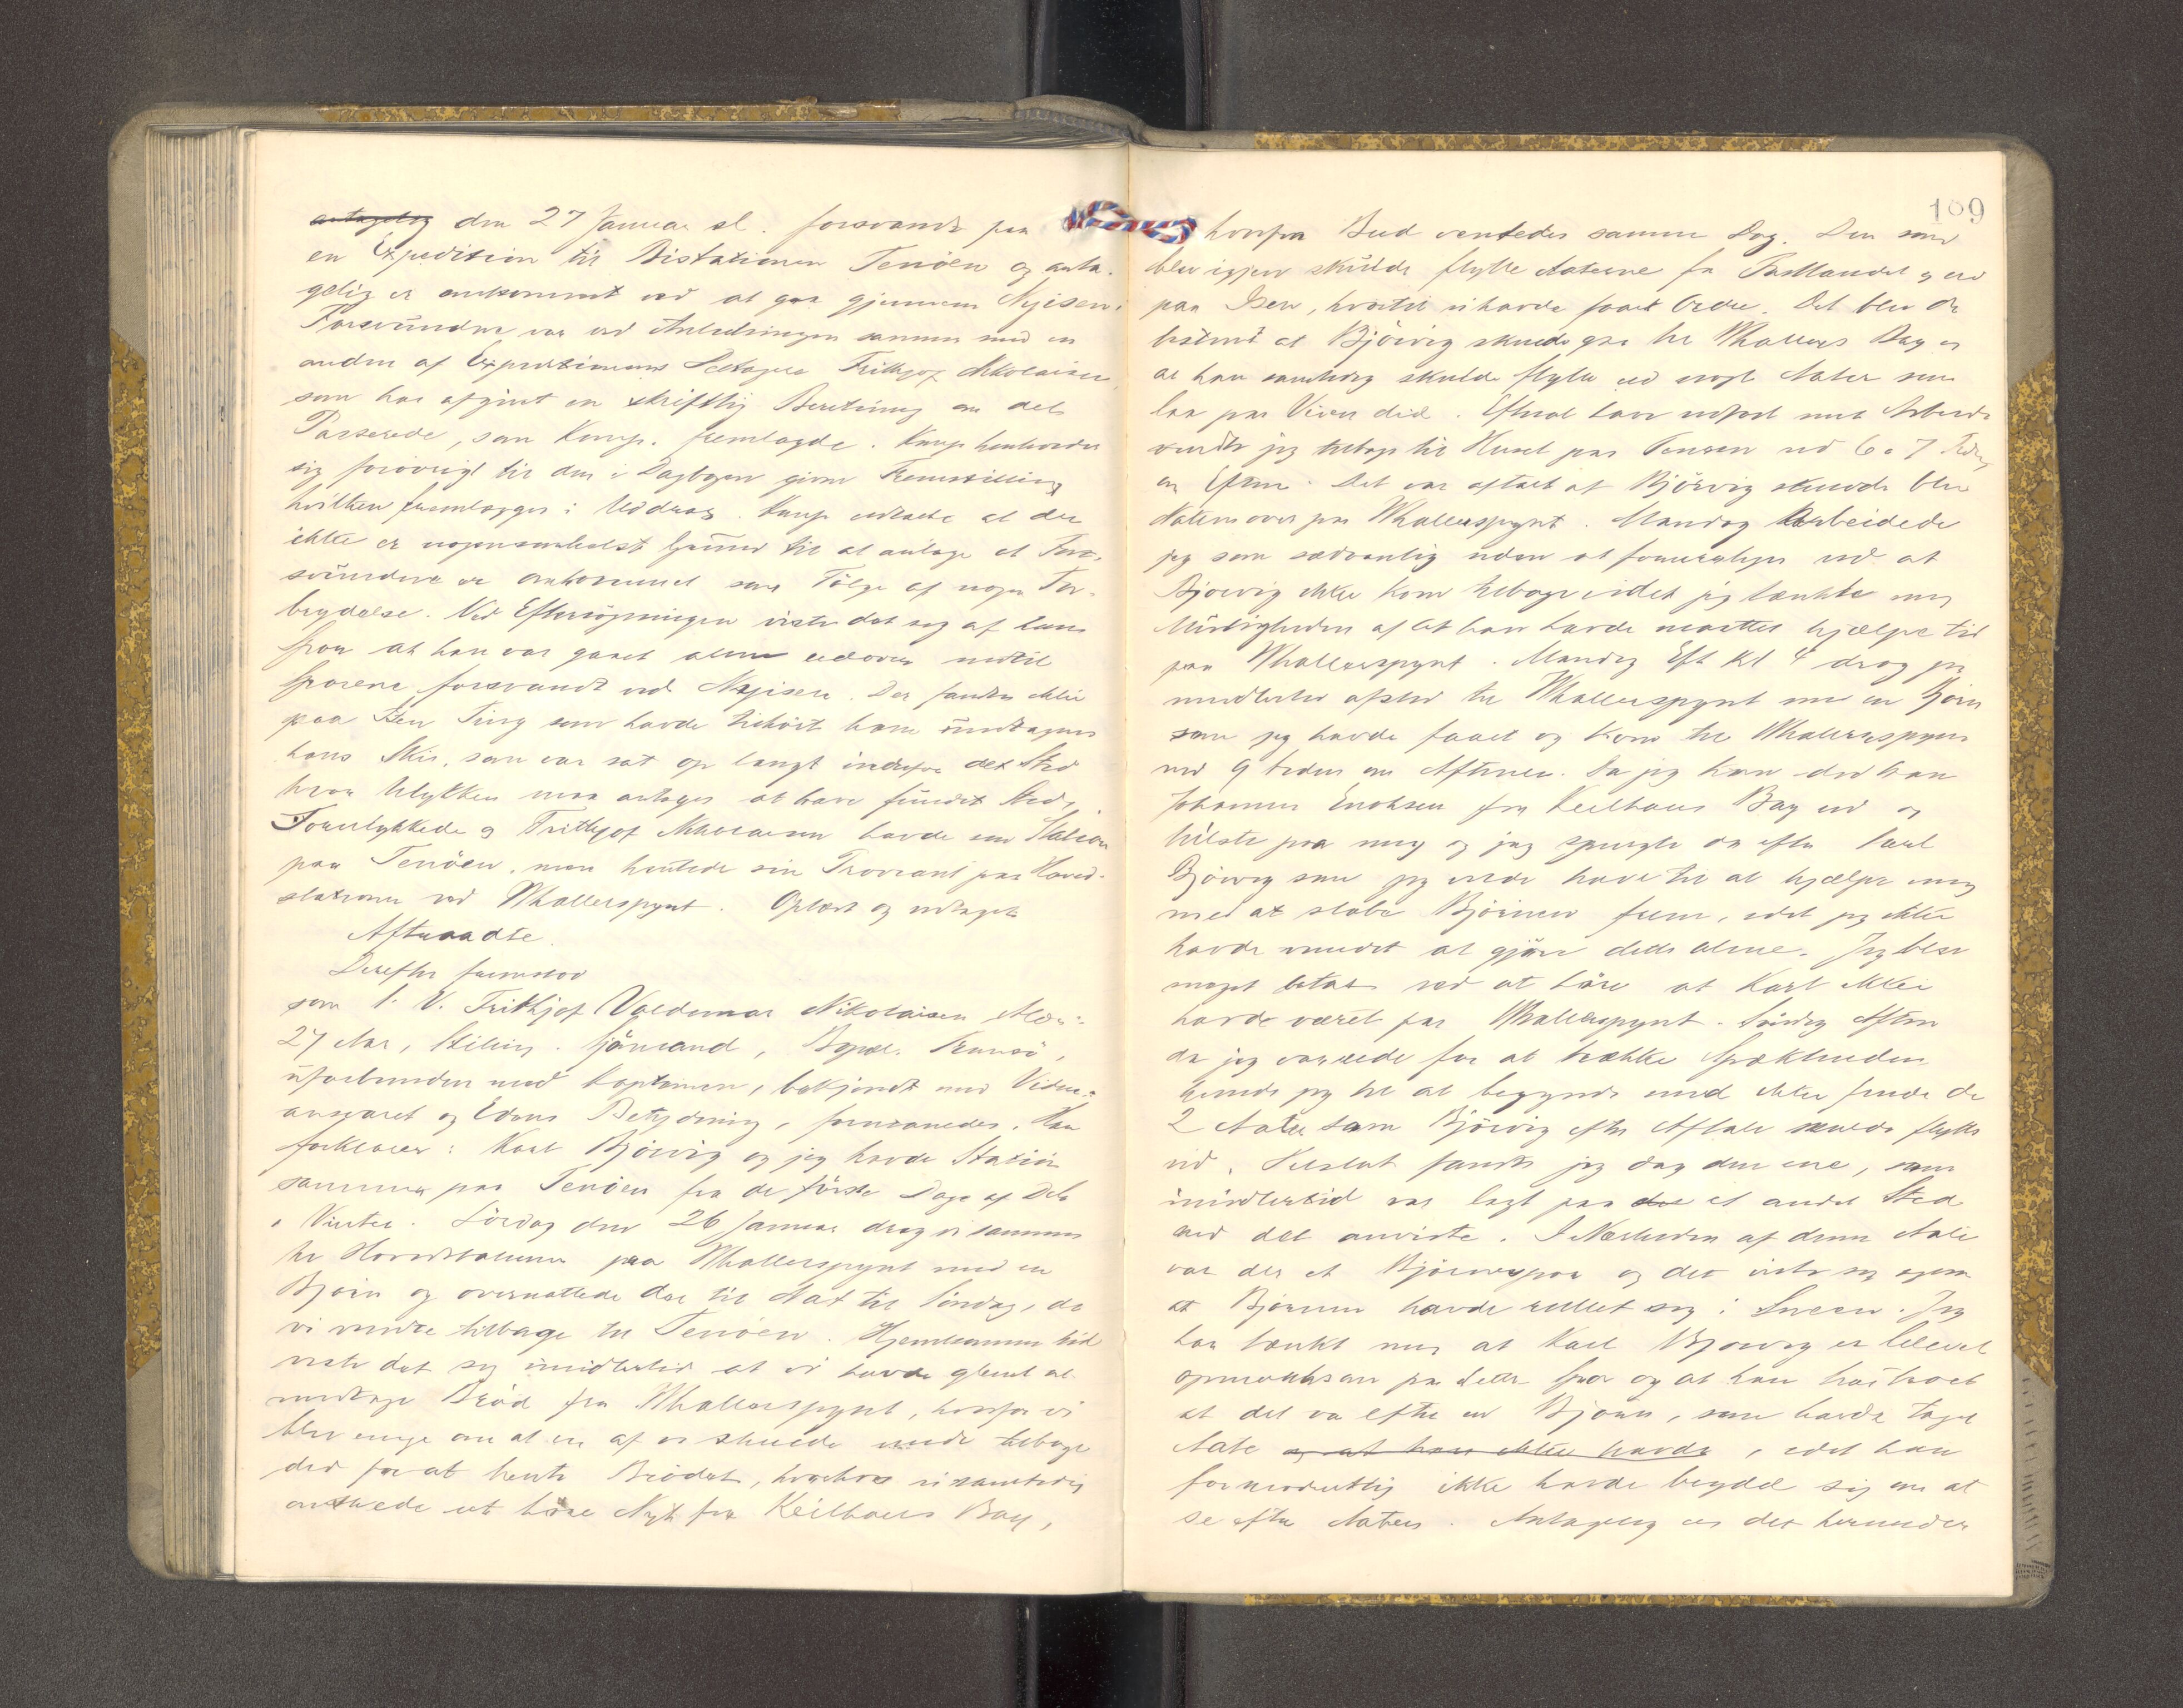 den 27 Januar sl. forsvandt paa
en Expedition til Bistationen Tenöen og anta-
gelig er omkommet ved at gaa gjennem Nyisen.
Forsvundne var ved Anledningen sammen med en
anden af Expeditionens Deltagere Frithjof Nikolaisen,
som har afgivet en skriftlig Beretning om det
Passerede, som Komp. fremlagde. Komp. henholder
sig forövrigt til den i Dagbogen givne Fremstilling
hvilken fremlægges i Uddrag. Komp. udtalte at der
ikke er nogensomhelst Grund til at antage at For-
svundne er omkommet som Fölge af nogen For-
brydelse. Ved Eftersögningen viste det sig af hans
Spor at han var gaaet alene udover indtil
Sporene forsvandt ved Nyisen. Der fandtes ikke
paa Isen Ting som havde tilhört ham undtagen
hans Skier, som var sat op langt indenfor det Sted
hvor Ulykken maa antages at have fundet Sted.
Forulykkede og Frithjof Nikolaisen havde sin Station
paa Tenöen, men hentede sin Proviant paa Hoved-
stationen ved Whalerspynt. Oplæst og vedtaget
Aftraadte.
Derefter fremstod
som 1. V. Frithjof Valdemar Nikolaisen Alder:
27 Aar, Stilling. Sjömand, Bopæl. Tromsö,
uforbunden med Kaptainen, bekjendt med Vidne-
ansvaret og Edens Betydning, formanedes. Han
forklarer: Karl Bjövig og jeg havde Station
sammen paa Tenöen fra de förste Dage af Deb
i Vinter. Lördag den 26 Januar drog vi sammen
til Hovedstationen paa Whalerspynt med en
Björn og overnattede der til Nat til Söndag, da
vi vendte tilbage til Tenöen. Hjemkommen did
viste det sig imidlertid at vi havde glemt at
medtage Bröd fra Whalerspynt, hvorfor vi
blev enige om at en af os skulde vende tilbage
did for at hente Brödet, hvorhos vi samtidig
önskede at höre Nyt fra Keilhaus Bay,
109
hvorfra Bud ventedes samme Dag. Den som
blev igjen skulde flytte Aaterne fra Fastlandet og ud
paa Isen, hvortil vi havde faaet Ordre. Det blev da
bestemt at Björvig skulde gaa til Whalers Bay og
at han samtidig skulde flytte ud noget Aater som
laa paa Veien did. Efter at have udfört mit Arbeide
vendte jeg tilbage til Huset paa Tenöen ved 6 a 7 Tiden
om Eftm. Det var aftalt at Björvig skulde blive
Natten over paa Whalerspynt. Mandag Arbeidede
jeg som sædvanlig uden at foruroliges ved at
Bjorvig ikke kom tilbage idet jeg tænkte mig
Muligheden af at han havde maattet hjælpe til
paa Whalerspynt. Mandag Eft Kl 4 drog jeg
imidlertid afsted til Whalerspynt med en Björn
som jeg havde faaet og kom til Whalerspynt
ved 9 tiden om Aftenen. Da jeg kom did kom
Johannes Enoksen fra Keilhaus Bay ud og
hilste paa mig og jeg spurgte da efter Karl
Björvig som jeg vilde have til at hjælpe mig
med at slæbe Björnen frem, idet jeg ikke
havde magtet at gjöre dette alene. Jeg blev
meget betat ved at höre at Karl ikke
havde været paa Whalerspynt. Söndag Aften
da jeg var ude for at trække Spækhuden
kunde jeg til at begynde med ikke finde de
2 Aater som Björvig efter Aftale skulde flytte
ud. Tilslut fandt jeg dog den ene, som
imidlertid var lagt paa et andet Sted
end det anviste. I Nærheden af denne Aate
var der et Björnespor og det viste sig ogsaa
at Björnen havde rullet sig i Sneen. Jeg
har tænkt mig at Karl Björvig er blevet
opmærksom paa dette Spor og at han har troet
at det var efter en Björn, som havde taget
Aate og at han ikke havde, idet han
formodentlig ikke havde brydd sig om at
se efter Aaten. Antagelig er det herunder